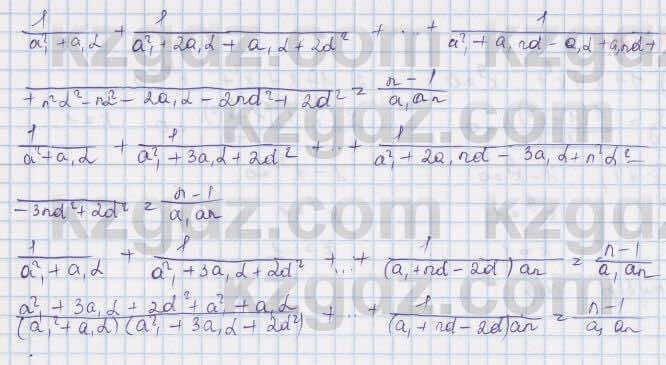 1/(a₁²+a₁d) + 1/(a₁²+2a₁d+a₁d+2d²) + ... + 1/(a₁²+a₁nd-a₁d+a₁nd+
+n²d²-nd²-2a₁d-2nd²+2d²) = (n-1)/(a₁aₙ)
1/(a²+a₁d) + 1/(a₁²+3a₁d+2d²) + ... + 1/(a₁²+2a₁nd-3a₁d+n²d²-
-3nd²+2d²) = (n-1)/(a₁aₙ)
1/(a₁²+a₁d) + 1/(a₁²+3a₁d+2d²) + ... + 1/((a₁+nd-2d)aₙ) = (n-1)/(a₁aₙ)
(a₁²+3a₁d+2d²+a₁²+a₁d)/((a₁²+a₁d)(a₁²+3a₁d+2d²)) + ... + 1/((a₁+nd-2d)aₙ) = (n-1)/(a₁aₙ)
kzgdz.com
kzgdz.com
kzgdz.com